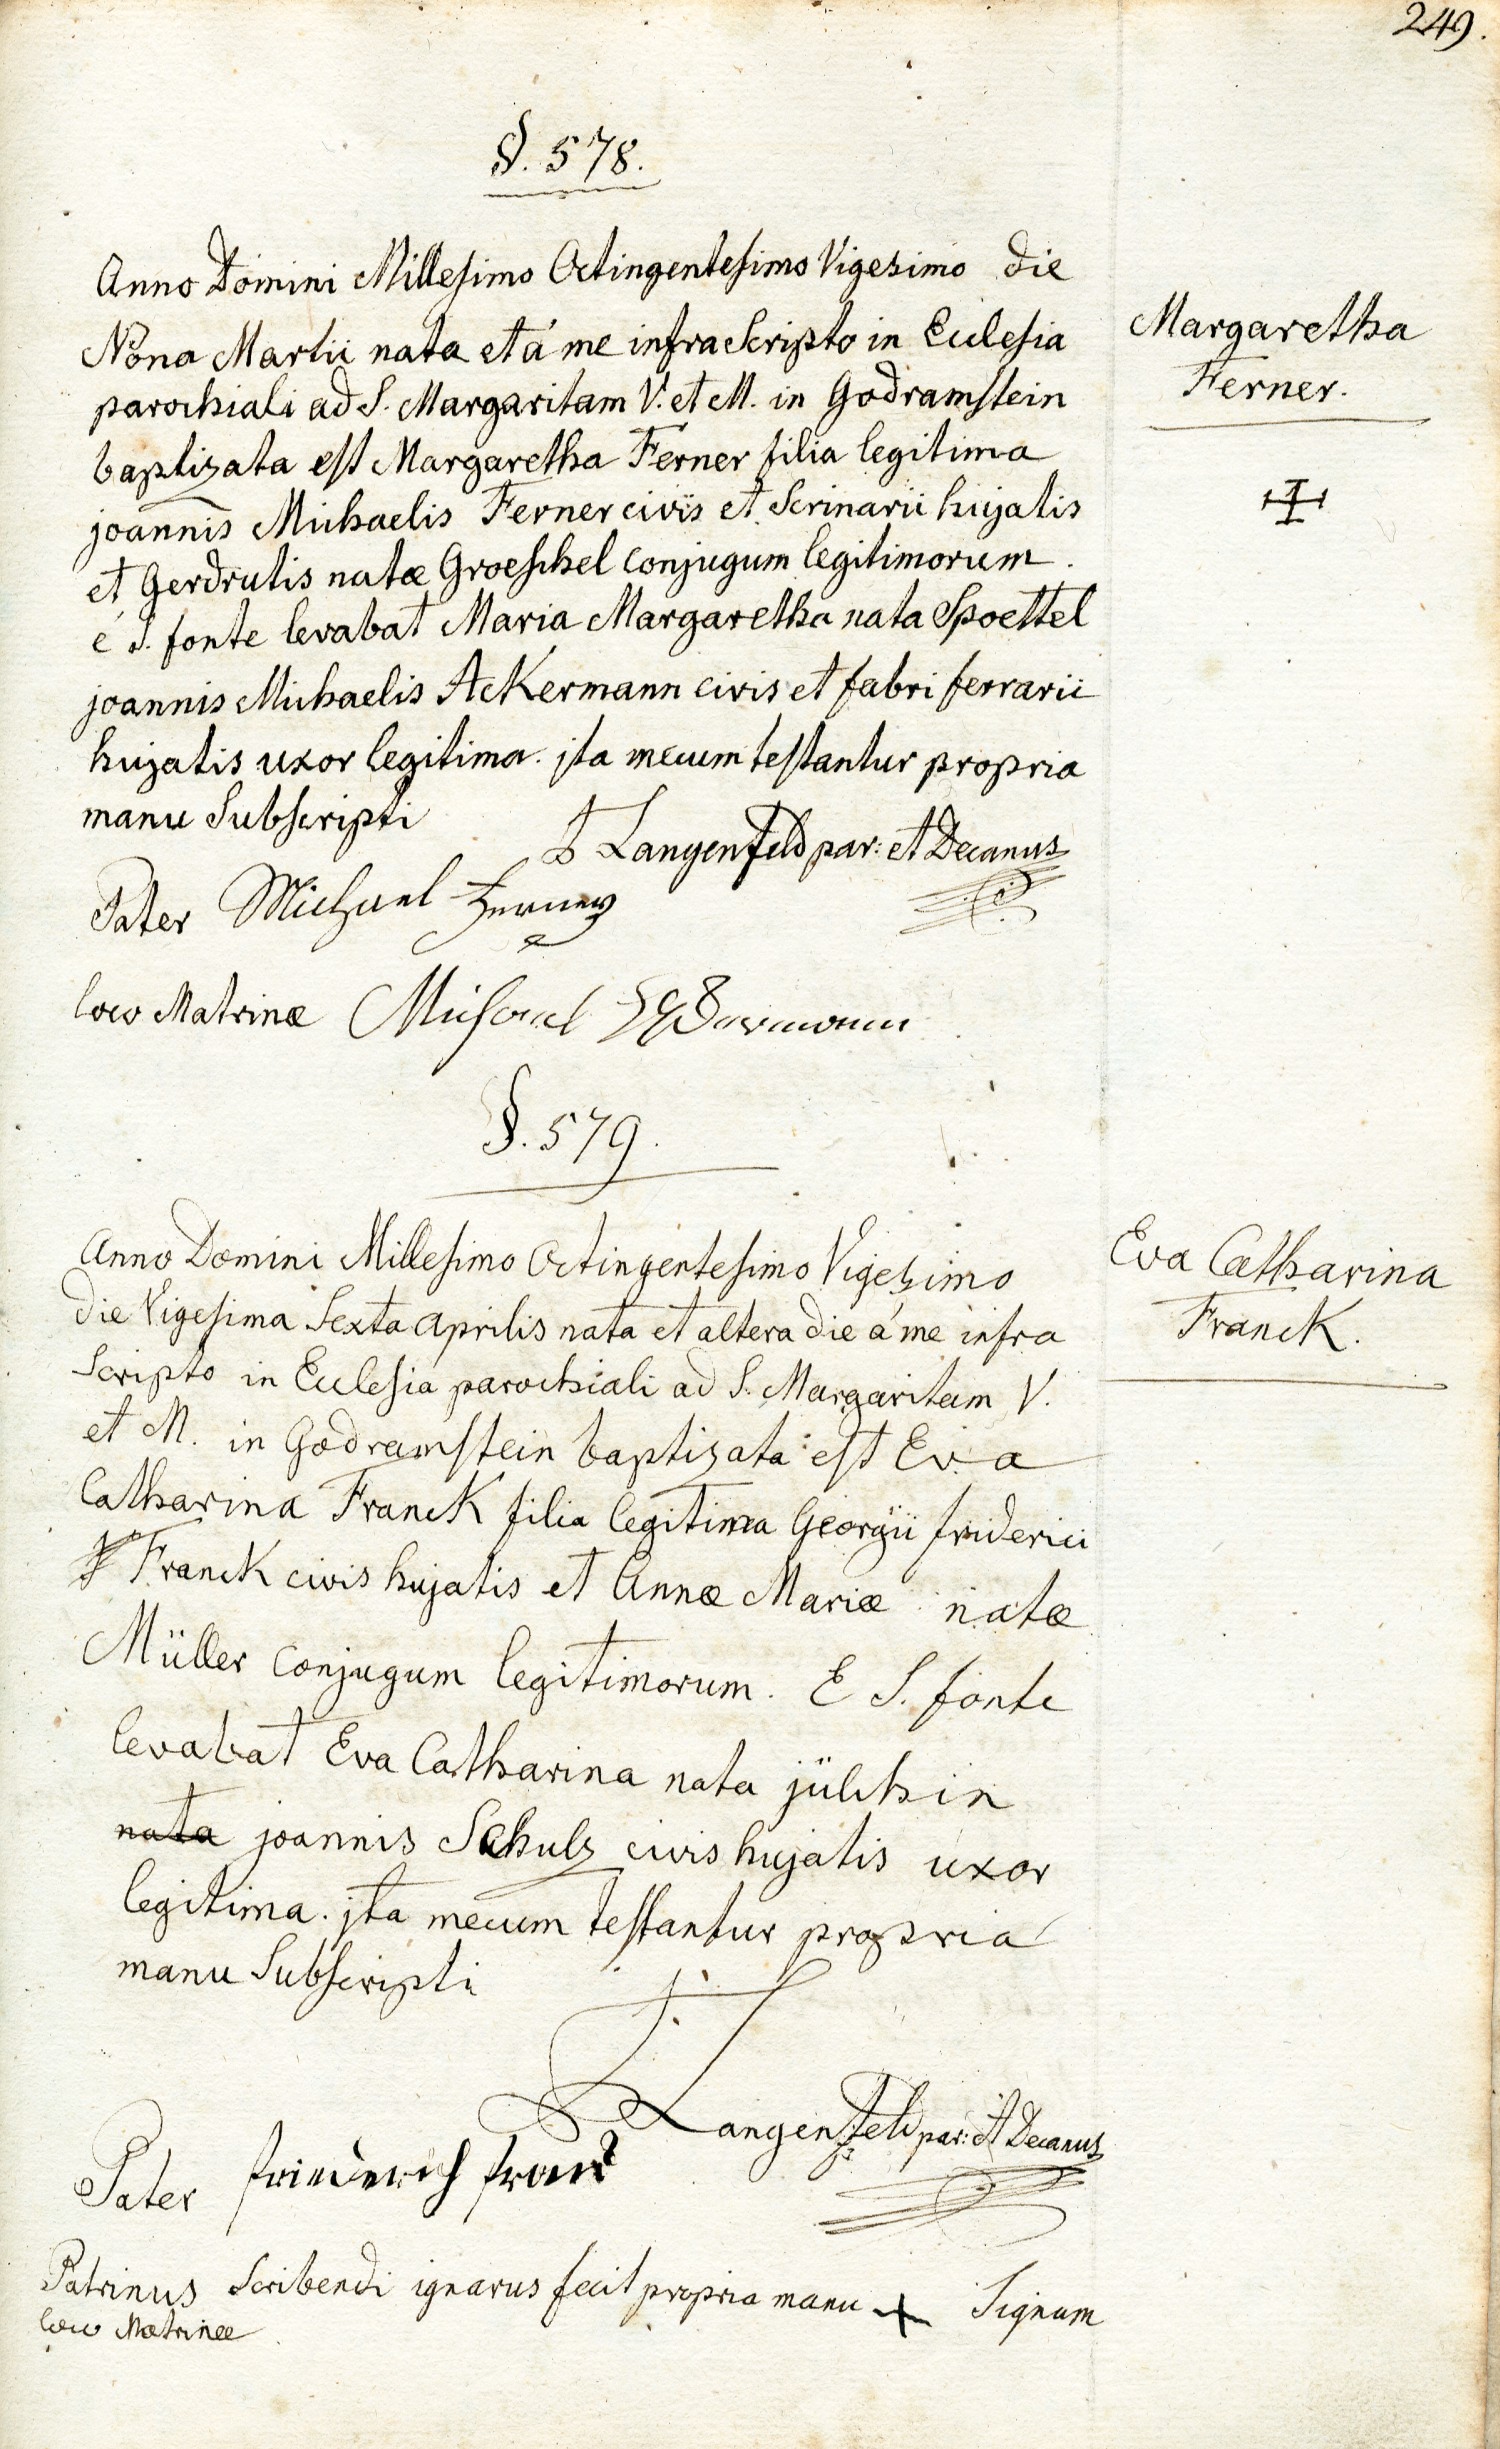 249.
§. 578.
Anno Domini Millesimo Octingentesimo Vigesimo die
Nona Martii nata et á me infra Scripto in Ecclesia
parochiali ad S. Margaritam V. et M. in Godramstein
baptizata est Margaretha Ferner filia legitima
joannis Michaelis Ferner civis et Scrinarii hujatis
et Gerdrutis natæ Groeschel conjugum legitimorum.
é S. fonte levabat Maria Margaretha nata Spoettel
joannis Michaelis AcKermann civis et fabri ferrarii
hujatis uxor legitima. jta mecum testantur propria
manu Subscripti
Langenfeld par: et Decanus
Pater Michael Ferner
loco Matrinæ Michael Ackermann
Margaretha
Ferner.
§. 579.
Anno Domini Millesimo Octingentesimo Vigesimo
die Vigesima Sexta Aprilis nata et altera die á me infra
Scripto in Ecclesia parochiali ad S. Margaritam V.
et M. in Godramstein baptizata est Eva
Catharina FrancK filia legitima Georgii friderici
FrancK civis hujatis et Annæ Mariæ natæ
Müller conjugum legitimorum. E S. fonte
levabat Eva Catharina nata jülchin
nata joannis Schulz civis hujatis uxor
legitima. jta mecum testantur propria
manu Subscripti
Langenfeld par: et Decanus
Pater friederich franck
Patrinus Scribendi ignarus fecit propria manu + Signum
loco Matrinæ
Eva Catharina
FrancK.